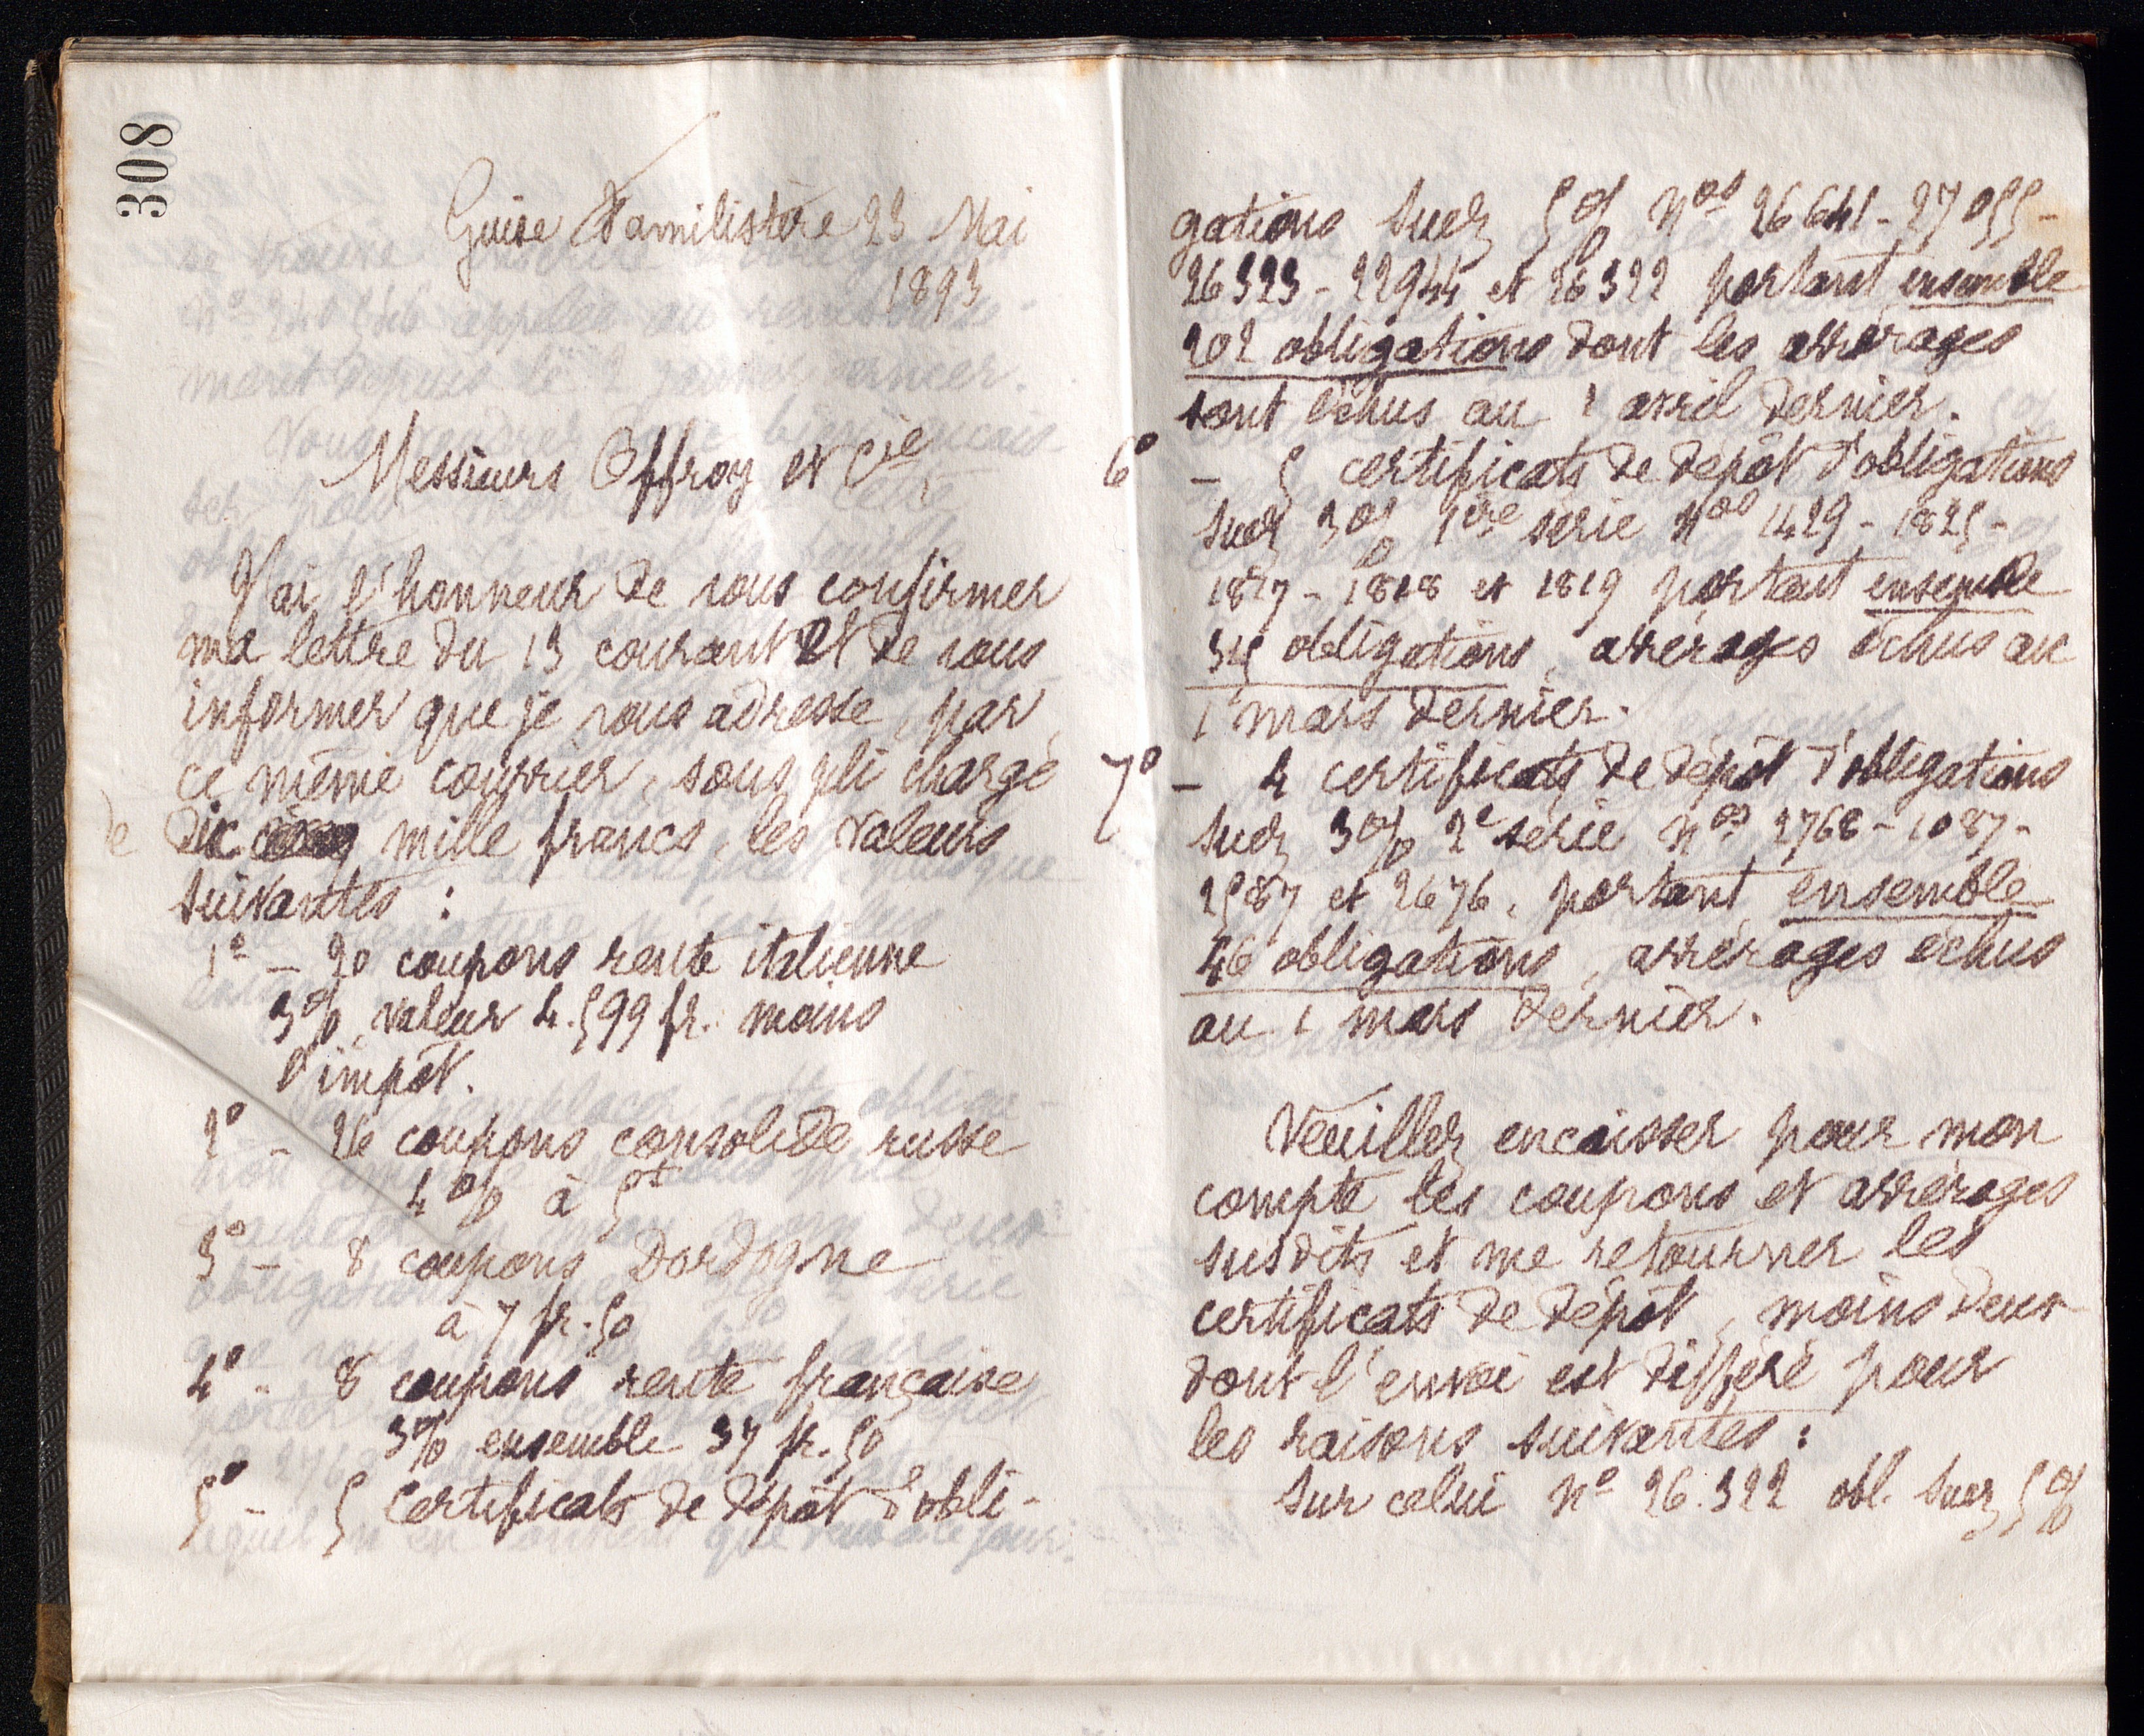 308
Guise Familistère 23 Mai
1893
Messieurs Offroy et Cie
J'ai l'honneur de vous confirmer
ma lettre du 13 courant et de vous
informer que je vous adresse, par
ce même courrier, sous pli chargé
de dix mille francs, les valeurs
suivantes :
1° - 20 coupons rente italienne
3%, valeur 4.599 fr. moins
l'impôt.
2° - 26 coupons consolidé russe
4% à 5f
3° - 8 coupons Dordogne
à 7 fr. 50
4° - 8 coupons rente française
3% ensemble 37 fr. 50
5° - 5 certificats de dépôt d'obli-
gations Suez 5% nos 26641 - 27055 -
26323 - 22944 et 26322 portant ensemble
202 obligations dont les arrérages
sont échus au 1 avril dernier.
6° - 5 certificats de dépôt d'obligations
Suez 3% 1ère série nos 1429 - 1825 -
1827 - 1818 et 1819 portant ensemble
345 obligations, arrérages échus au
1 mars dernier.
7° - 4 certificats de dépôt d'obligations
Suez 3% 2e série nos 2768 - 1087 -
2587 et 2676, portant ensemble
46 obligations, arrérages échus
au 1 mars dernier.
Veuillez encaisser pour mon
compte les coupons et arrérages
susdits et me retourner les
certificats de dépôt, moins deux
dont l'envoi est différé pour
les raisons suivantes :
Sur celui n° 26.322 obl. Suez 5%